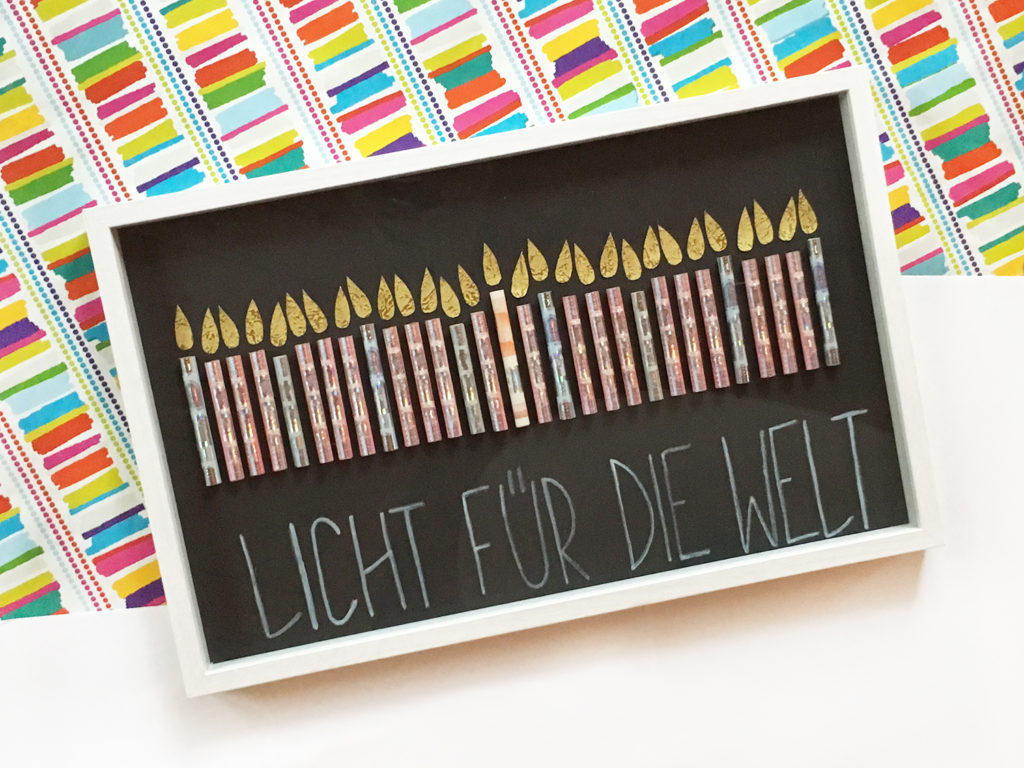 LICHT FÜR DIE WELT